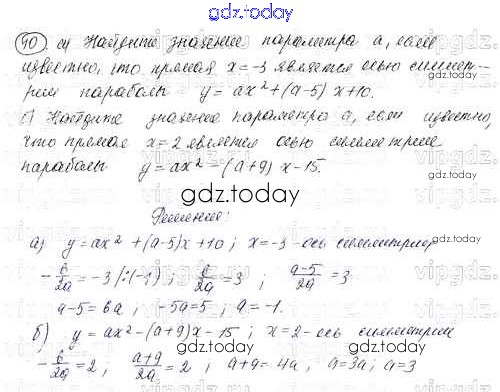 gdz.today
40 а) Найдите значение параметра a, если
известно, что прямая x = -3 является осью симмет-
рии параболы y = ax² + (a-5)x + 10.
б) Найдите значение параметра a, если известно,
что прямая x = 2 является осью симметрии
параболы y = ax² - (a+9)x - 15.
gdz.today
Решение:
а) y = ax² + (a-5)x + 10; x = -3 - ось симметрии
- b/2a = -3 /:(-1); b/2a = 3; a-5/2a = 3
a-5 = 6a; -5a = 5; a = -1.
б) y = ax² - (a+9)x - 15; x = 2 - ось симметрии
- b/2a = 2, a+9/2a = 2, a+9 = 4a, 9=3a; a=3
gdz.today